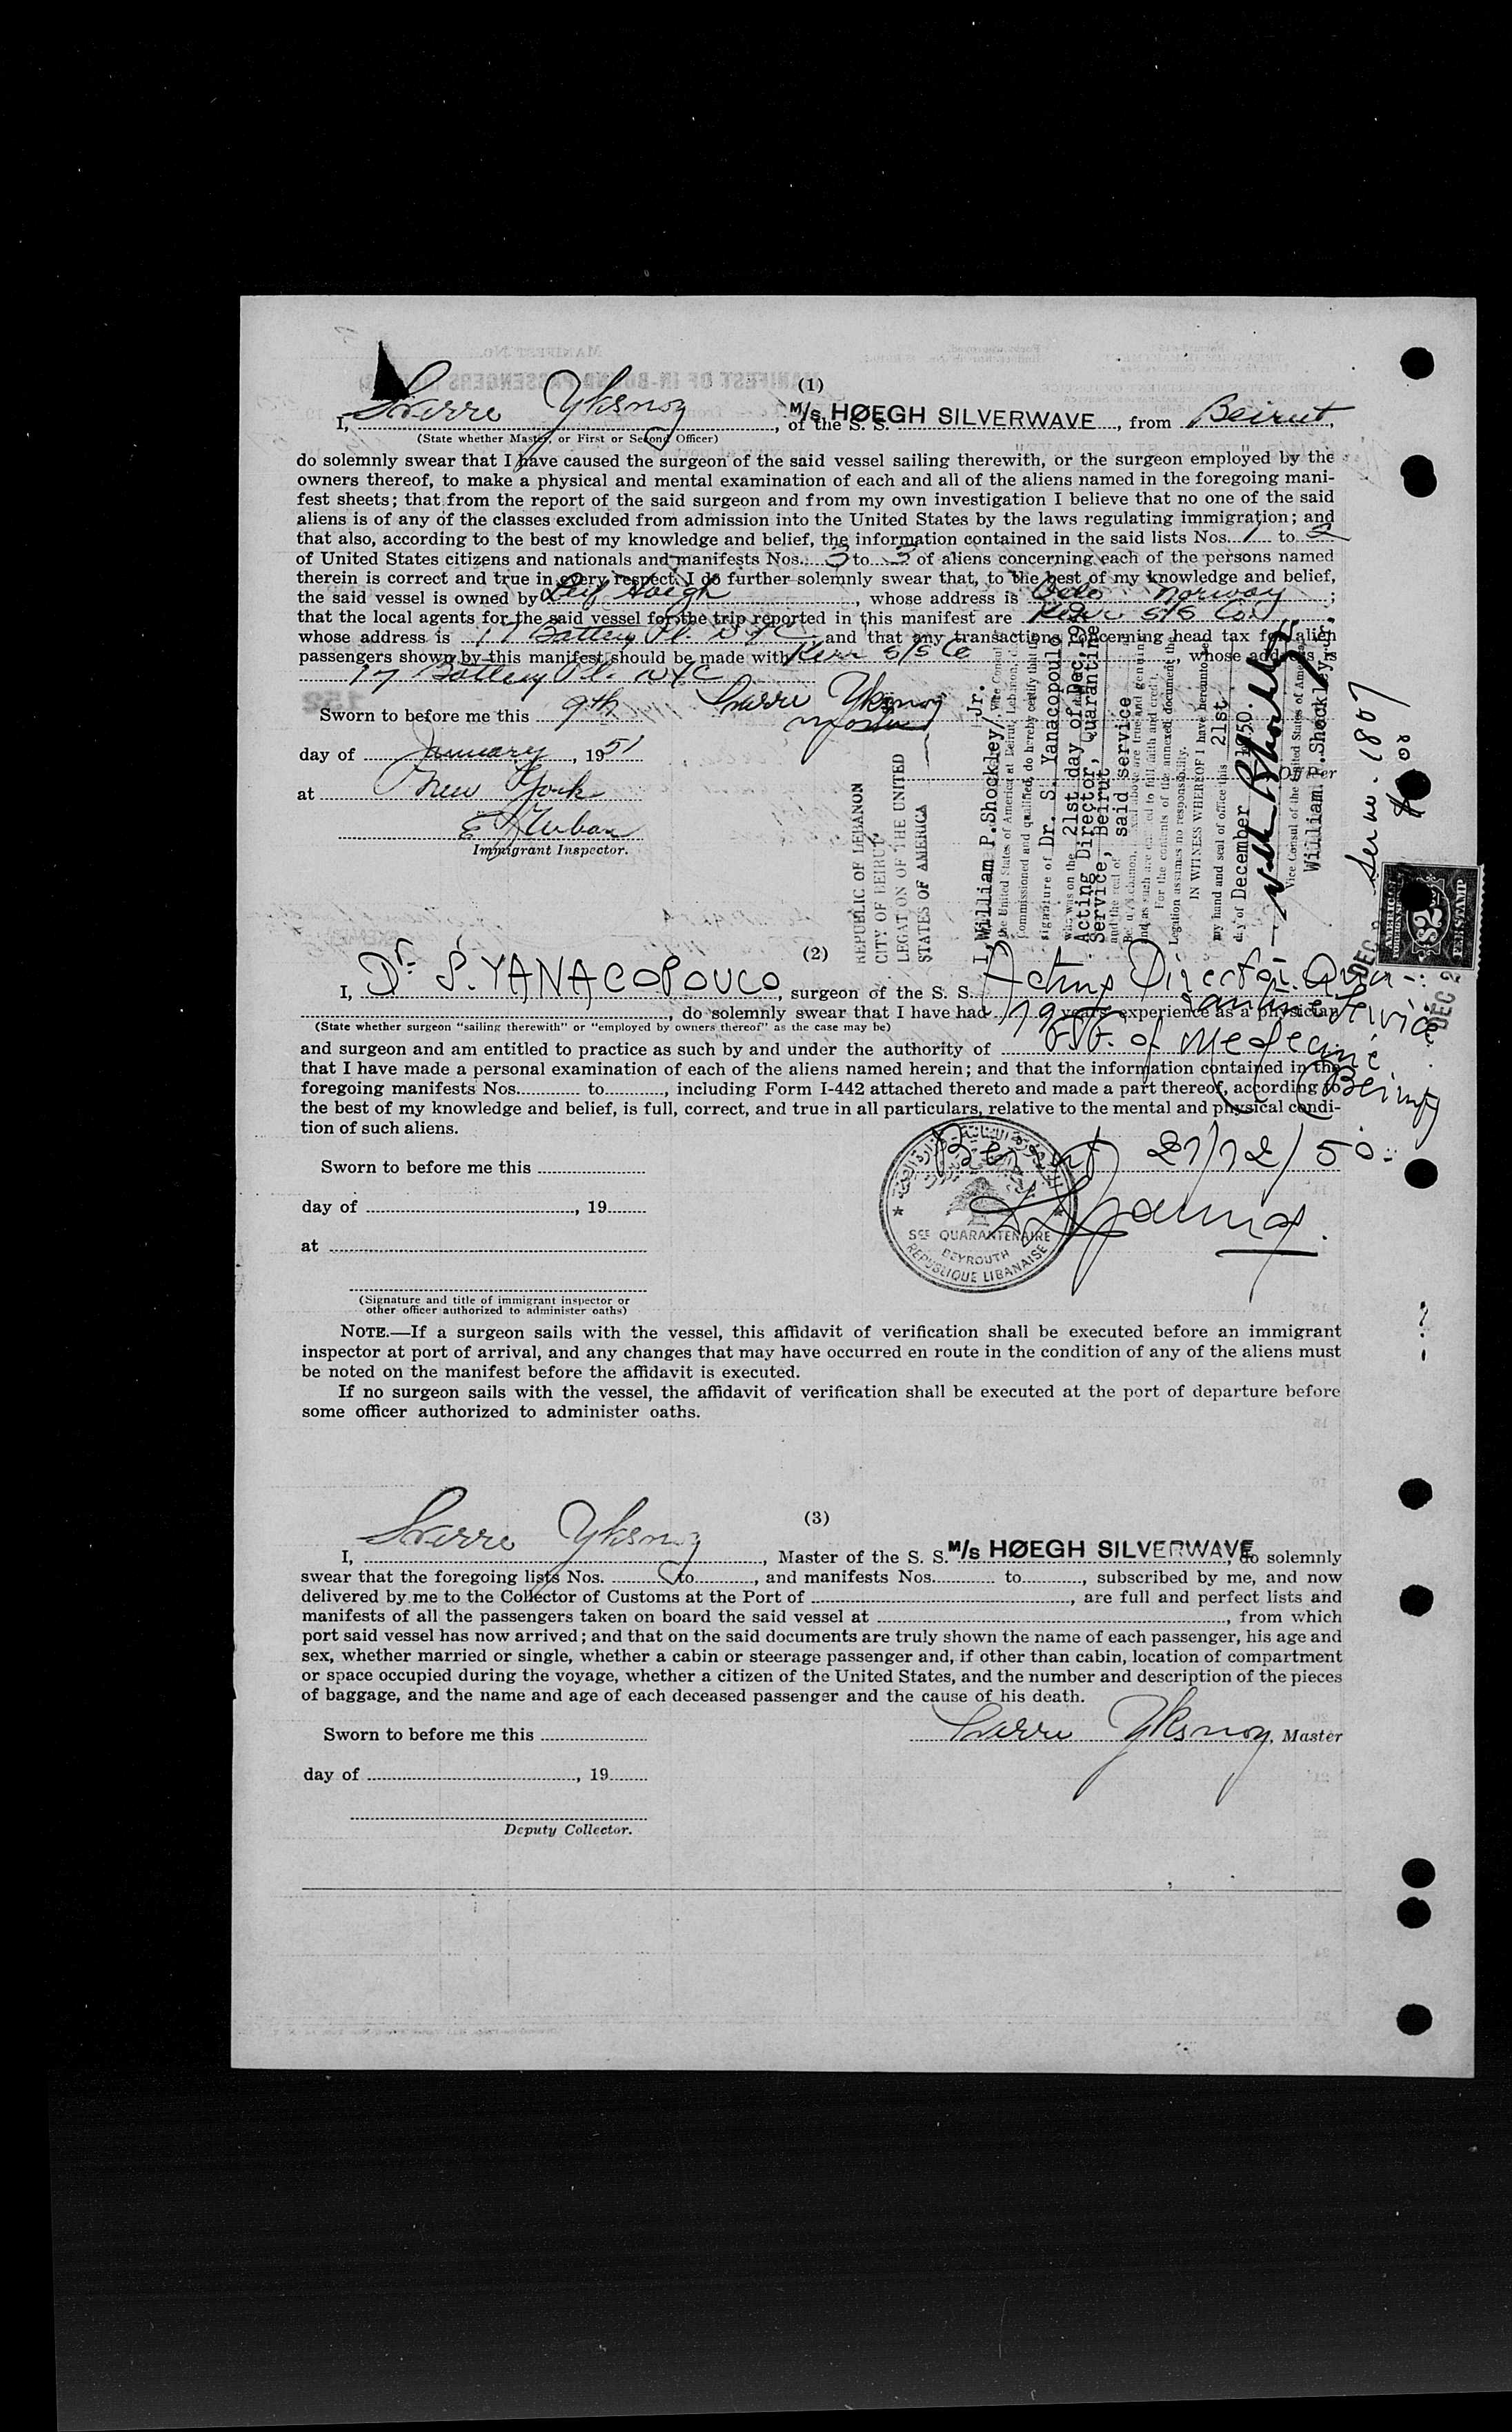 (1)
I, Sverre Yksnoy, of the S. S. M/s HØEGH SILVERWAVE, from Beirut,
(State whether Master, or First or Second Officer)
do solemnly swear that I have caused the surgeon of the said vessel sailing therewith, or the surgeon employed by the
owners thereof, to make a physical and mental examination of each and all of the aliens named in the foregoing mani-
fest sheets; that from the report of the said surgeon and from my own investigation I believe that no one of the said
aliens is of any of the classes excluded from admission into the United States by the laws regulating immigration; and
that also, according to the best of my knowledge and belief, the information contained in the said lists Nos. 1 to 2
of United States citizens and nationals and manifests Nos. 3 to 3 of aliens concerning each of the persons named
therein is correct and true in every respect. I do further solemnly swear that, to the best of my knowledge and belief,
the said vessel is owned by Leif Hoegh, whose address is Oslo Norway;
that the local agents for the said vessel for the trip reported in this manifest are Kerr S/S Co
whose address is 17 Battery Pl. NYC and that any transactions concerning head tax for alien
passengers shown by this manifest should be made with Kerr S/S Co, whose address is
17 Battery Pl. NYC
Sworn to before me this 9th Sverre Yksnoy
Master
day of January, 1951
at New York
Officer
E A Urban
Immigrant Inspector.
REPUBLIC OF LEBANON
CITY OF BEIRUT
LEGATION OF THE UNITED
STATES OF AMERICA
I, William P. Shockley, Jr. Vice Consul of
the United States of America at Beirut, Lebanon, duly
commissioned and qualified, do hereby certify that the
signature of Dr. S. Yanacopoulo
who was on the 21st day of Dec. 1950
Acting Director, Quarantine
Service, Beirut
and the seal of said service
For the contents of the annexed document the
Legation assumes no responsibility.
IN WITNESS WHEREOF I have hereunto set
my hand and seal of office this 21st
day of December 1950.
Vice Consul of the United States of America
William P. Shockley, Jr.
Ser no. 1807
AMERICAN
FOREIGN SERVICE
$2
FEE STAMP
DEC 2
DEC 2
(2)
I, Dr. S. YANACOPOULO, surgeon of the S. S. Acting Director Quar-
antine Service
, do solemnly swear that I have had 19 years' experience as a physician
(State whether surgeon "sailing therewith" or "employed by owners thereof" as the case may be)
and surgeon and am entitled to practice as such by and under the authority of of Medecine
(Beirut)
that I have made a personal examination of each of the aliens named herein; and that the information contained in the
foregoing manifests Nos. to, including Form I-442 attached thereto and made a part thereof, according to
the best of my knowledge and belief, is full, correct, and true in all particulars, relative to the mental and physical condi-
tion of such aliens.
Beirut 21/12/50
Sworn to before me this
day of , 19
at
SCE QUARANTENAIRE
BEYROUTH
REPUBLIQUE LIBANAISE
(Signature and title of immigrant inspector or
other officer authorized to administer oaths)
NOTE.—If a surgeon sails with the vessel, this affidavit of verification shall be executed before an immigrant
inspector at port of arrival, and any changes that may have occurred en route in the condition of any of the aliens must
be noted on the manifest before the affidavit is executed.
If no surgeon sails with the vessel, the affidavit of verification shall be executed at the port of departure before
some officer authorized to administer oaths.
(3)
I, Sverre Yksnoy, Master of the S. S. M/s HØEGH SILVERWAVE, do solemnly
swear that the foregoing lists Nos. to, and manifests Nos. to, subscribed by me, and now
delivered by me to the Collector of Customs at the Port of , are full and perfect lists and
manifests of all the passengers taken on board the said vessel at , from which
port said vessel has now arrived; and that on the said documents are truly shown the name of each passenger, his age and
sex, whether married or single, whether a cabin or steerage passenger and, if other than cabin, location of compartment
or space occupied during the voyage, whether a citizen of the United States, and the number and description of the pieces
of baggage, and the name and age of each deceased passenger and the cause of his death.
Sworn to before me this Sverre Yksnoy, Master
day of , 19
Deputy Collector.